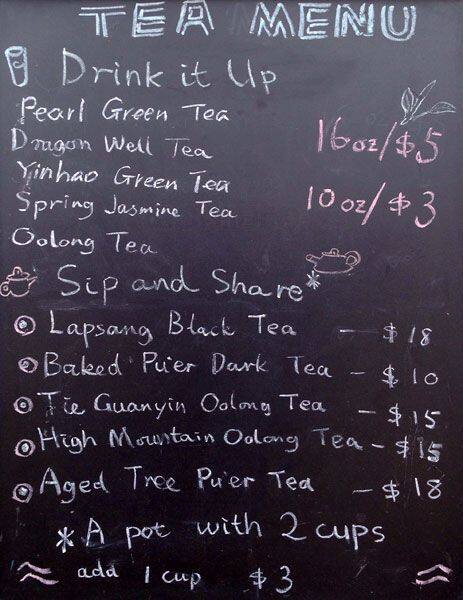 TEA MENU
Drink it Up
Pearl Green Tea
Dragon Well Tea
16oz/$5
Yinhao Green Tea
Spring Jasmine Tea
10oz/$3
Oolong Tea
Sip and Share*
Lapsang Black Tea — $18
Baked Pu'er Dark Tea — $10
Tie Guanyin Oolong Tea — $15
High Mountain Oolong Tea — $15
Aged Tree Pu'er Tea — $18
* A pot with 2 cups
add 1 cup $3